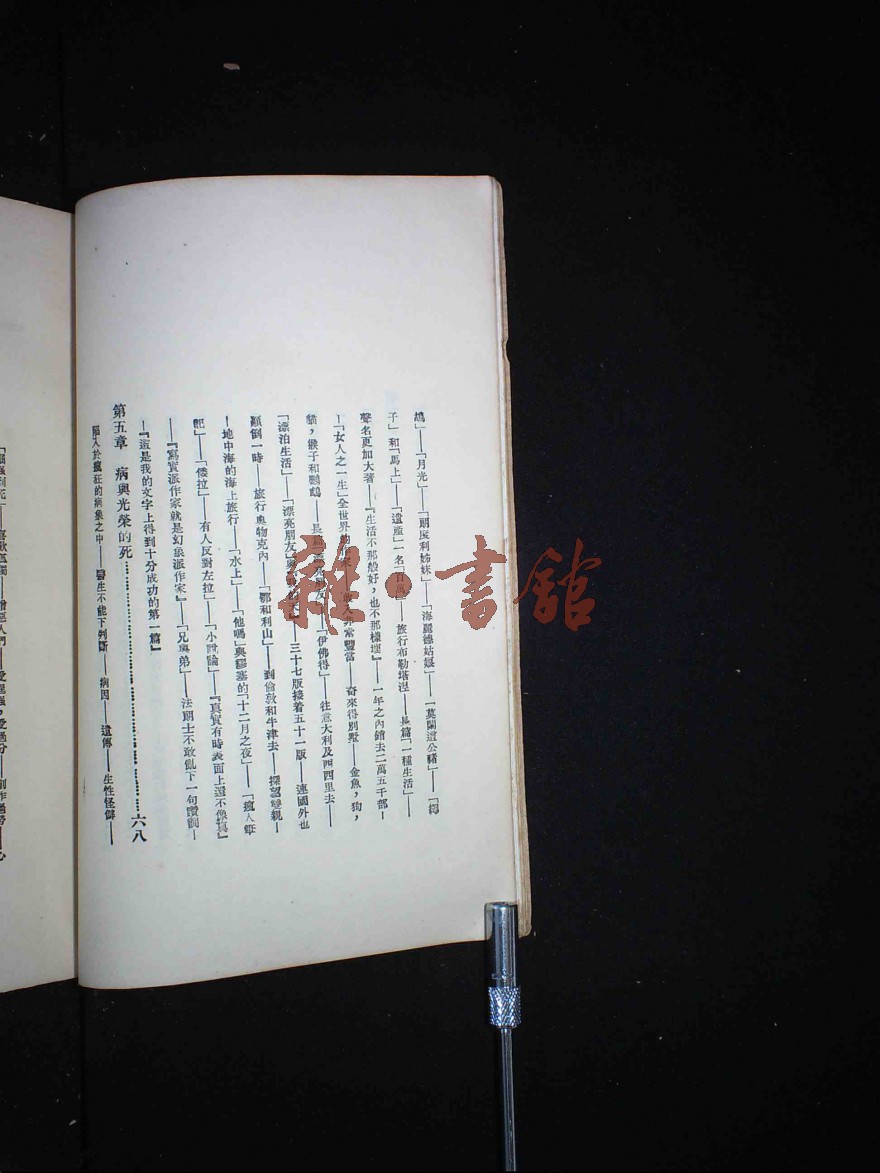 鴣」——「月光」——「朗度利姊妹」——「海麗德姑娘」——「莫蘭這公豬」——「繩
子」和「馬上」——「遺產」一名「百萬」——旅行布勒塔湼——長篇「一種生活」——
聲名更加大著——『生活不那般好，也不那樣壞』——一年之內銷去二萬五千部—
—「女人之一生」全世界的 常豐富——奇來得別墅——金魚，狗，
貓，猴子和鸚鵡——長篇 「伊佛得」——往意大利及西西里去——
「漂泊生活」——「漂亮朋友」 三十七版接着五十一版——連國外也
顛倒一時——旅行奧物克內——「鄂和利山」——到倫敦和牛津去——探望雙親—
—地中海的海上旅行——「水上」——「他嗎」與繆塞的「十二月之夜」——「瘋人
記」——「倭拉」——有人反對左拉——「小說論」——『真實有時表面上還不像真』
——『寫實派作家就是幻象派作家』——「兄與弟」——法朗士不敢亂下一句讚詞—
—『這是我的文字上得到十分成功的第一篇』
第五章　病與光榮的死……………………六八
陷入於瘋狂的病象之中——醫生不能下判斷——病因——遺傳——生性怪僻——
雜·書館